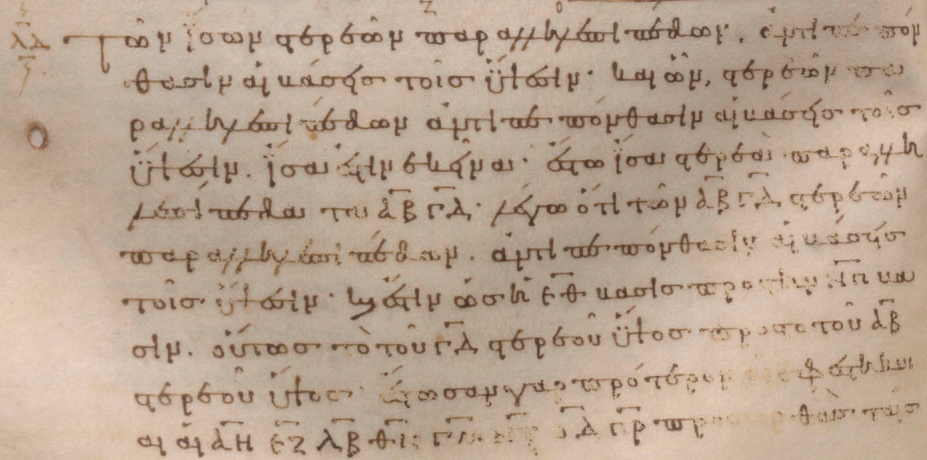 λδ τῶν ἴσων στερεῶν παραλληλεπιπέδων, ἀντιπεπόν
θασιν αἱ βάσεις τοῖς ὕψεσιν· καὶ ὧν, στερεῶν πα
ραλληλεπιπέδων ἀντιπεπόνθασιν αἱ βάσεις τοῖς
ὕψεσιν. ἴσα ἐστὶν ἐκεῖνα· ἔστω ἴσα στερεὰ παραλλη
λεπίπεδα τὰ ΑΒ ΓΔ· λέγω ὅτι τῶν ΑΒ ΓΔ στερεῶν
παραλληλεπιπέδων. ἀντιπεπόνθασιν αἱ βάσεις
τοῖς ὕψεσιν· καί ἐστιν ὡς ἡ ΕΘ βάσις πρὸς τὴν ΝΠ βά
σιν. οὕτως τὸ τοῦ ΓΔ στερεοῦ ὕψος πρὸς τὸ τοῦ ΑΒ
στερεοῦ ὕψος· ἔστωσαν γὰρ πρότερον αἱ ἐφεστηκυῖ
αι αἱ ΑΗ ΕΖ ΛΒ ΘΚ ΓΜ ΝΞ ΟΔ ΠΡ πρὸς ὀρθὰς ταῖς